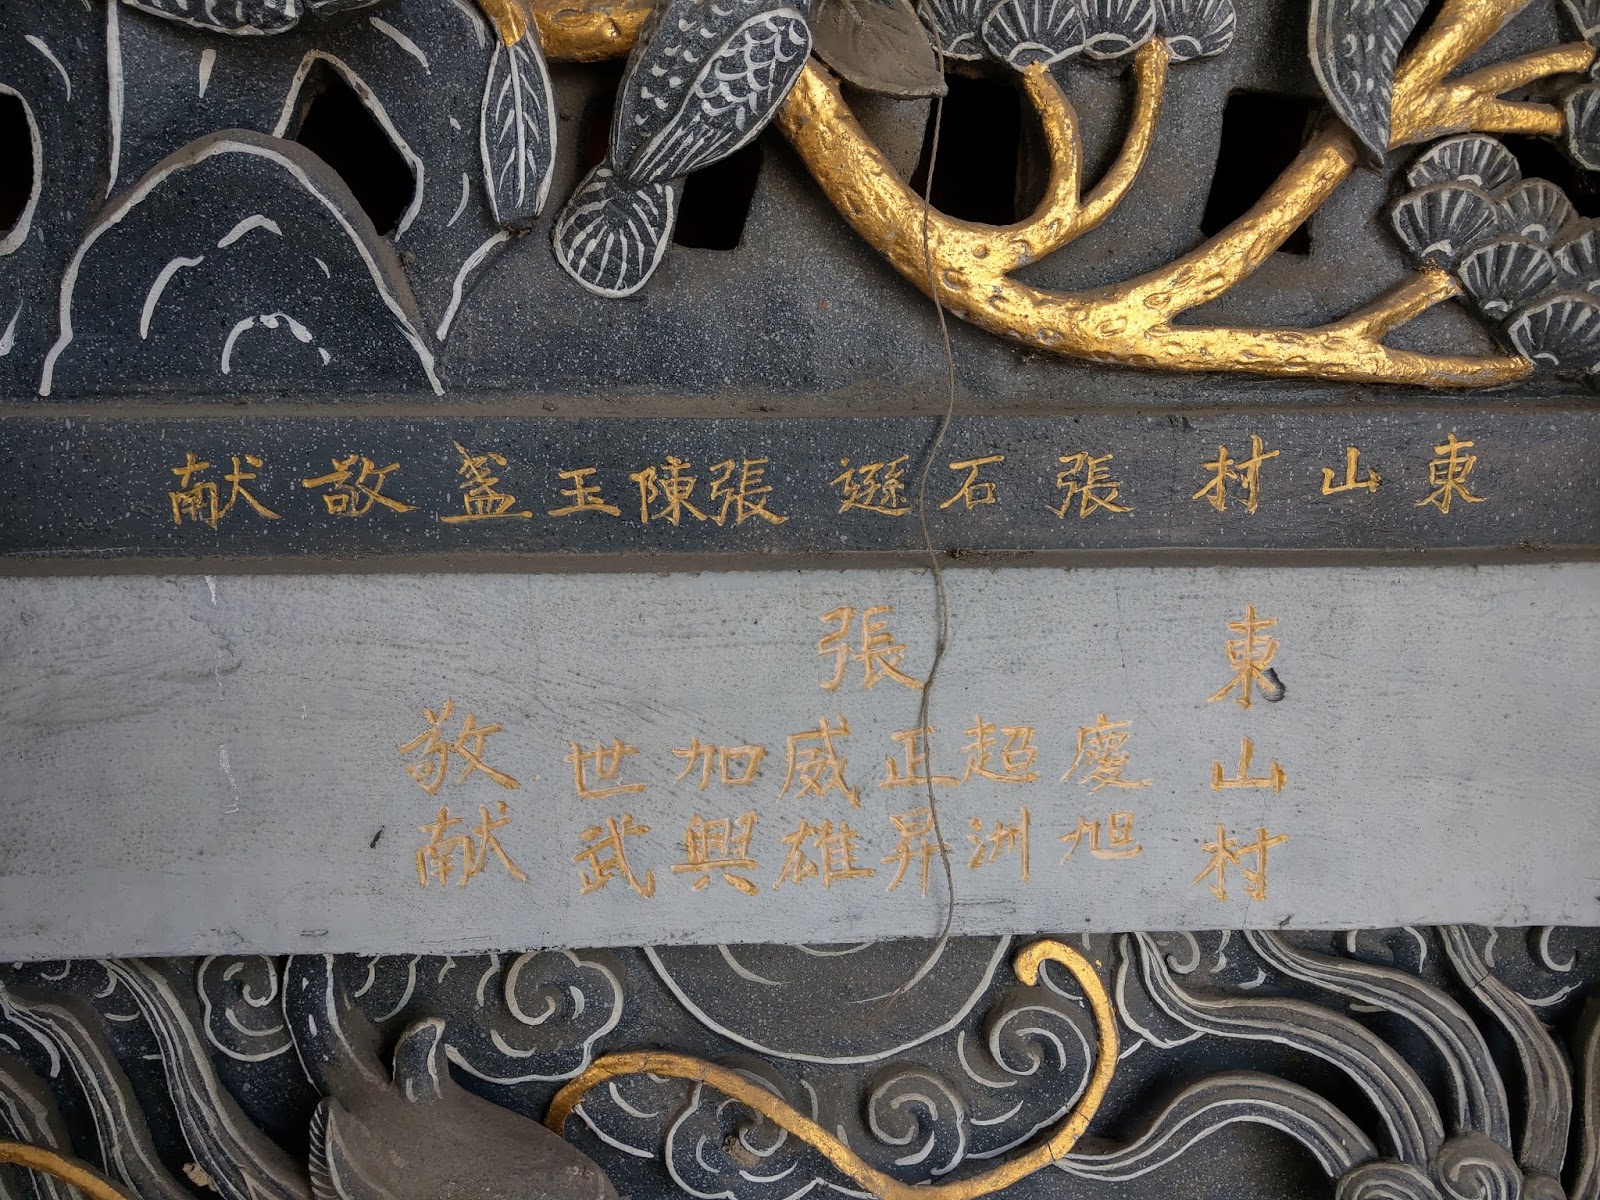 東山村張石遜張陳玉盞敬献
東山村
張
慶旭
超洲
正昇
威雄
加興
世武
敬献